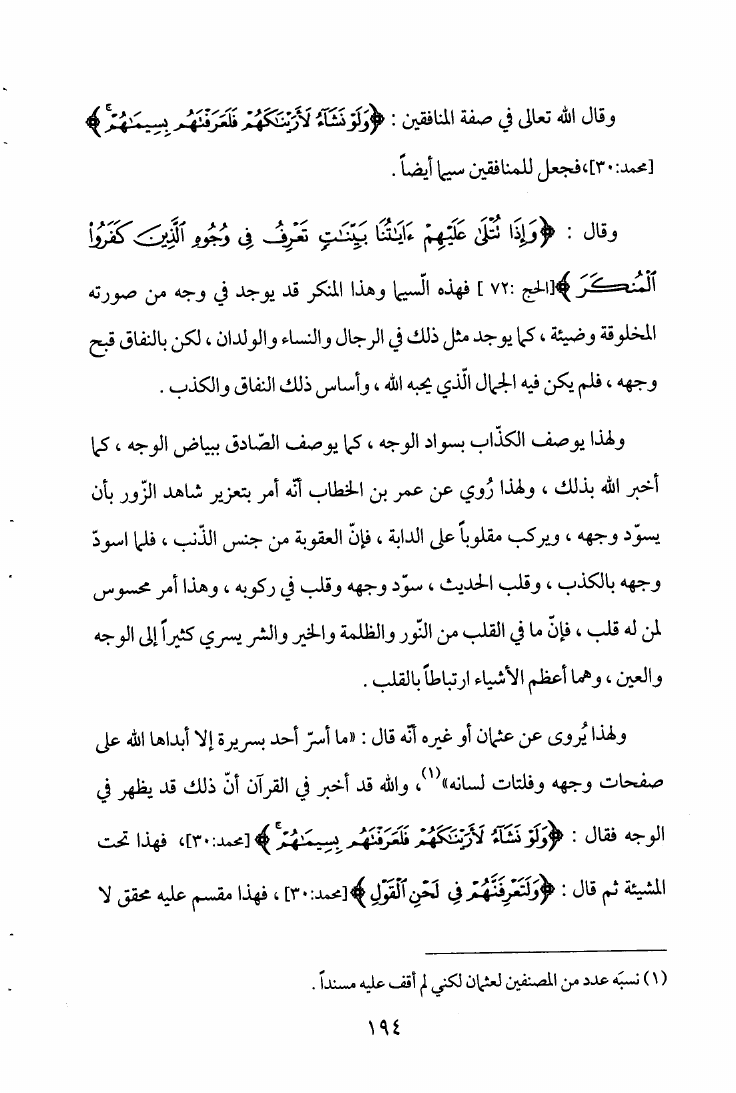 وقال الله تعالى في صفة المنافقين : ﴿وَلَوْ نَشَآءُ لَأَرَيْنَٰكَهُمْ فَلَعَرَفْتَهُم بِسِيمَٰهُمْ ۚ﴾
[محمد:٣٠]،فجعل للمنافقين سيما أيضاً .
وقال : ﴿وَإِذَا تُتْلَىٰ عَلَيْهِمْ ءَايَٰتُنَا بَيِّنَٰتٍ تَعْرِفُ فِى وُجُوهِ ٱلَّذِينَ كَفَرُوا۟
ٱلْمُنكَرَ ﴾[الحج :٧٢ ] فهذه السّيما وهذا المنكر قد يوجد في وجه من صورته
المخلوقة وضيئة ، كما يوجد مثل ذلك في الرجال والنساء والولدان ، لكن بالنفاق قبح
وجهه ، فلم يكن فيه الجمال الّذي يحبه الله ، وأساس ذلك النفاق والكذب .
ولهذا يوصف الكذّاب بسواد الوجه ، كما يوصف الصّادق ببياض الوجه ، كما
أخبر الله بذلك ، ولهذا رُوي عن عمر بن الخطاب أنّه أمر بتعزير شاهد الزّور بأن
يسوّد وجهه ، ويركب مقلوباً على الدابة ، فإنّ العقوبة من جنس الذّنب ، فلما اسودّ
وجهه بالكذب ، وقلب الحديث ، سوّد وجهه وقلب في ركوبه ، وهذا أمر محسوس
لمن له قلب ، فإنّ ما في القلب من النّور والظلمة والخير والشر يسري كثيراً إلى الوجه
والعين ، وهما أعظم الأشياء ارتباطاً بالقلب .
ولهذا يُروى عن عثمان أو غيره أنّه قال : «ما أسرّ أحد بسريرة إلا أبداها الله على
صفحات وجهه وفلتات لسانه»(١)، والله قد أخبر في القرآن أنّ ذلك قد يظهر في
الوجه فقال : ﴿وَلَوْ نَشَآءُ لَأَرَيْنَٰكَهُمْ فَلَعَرَفْتَهُم بِسِيمَٰهُمْ ۚ﴾ [محمد:٣٠]، فهذا تحت
المشيئة ثم قال : ﴿وَلَتَعْرِفَنَّهُمْ فِى لَحْنِ ٱلْقَوْلِ ﴾[محمد:٣٠] ، فهذا مقسم عليه محقق لا
(١) نسبَه عدد من المصنفين لعثمان لكني لم أقف عليه مسنداً .
١٩٤